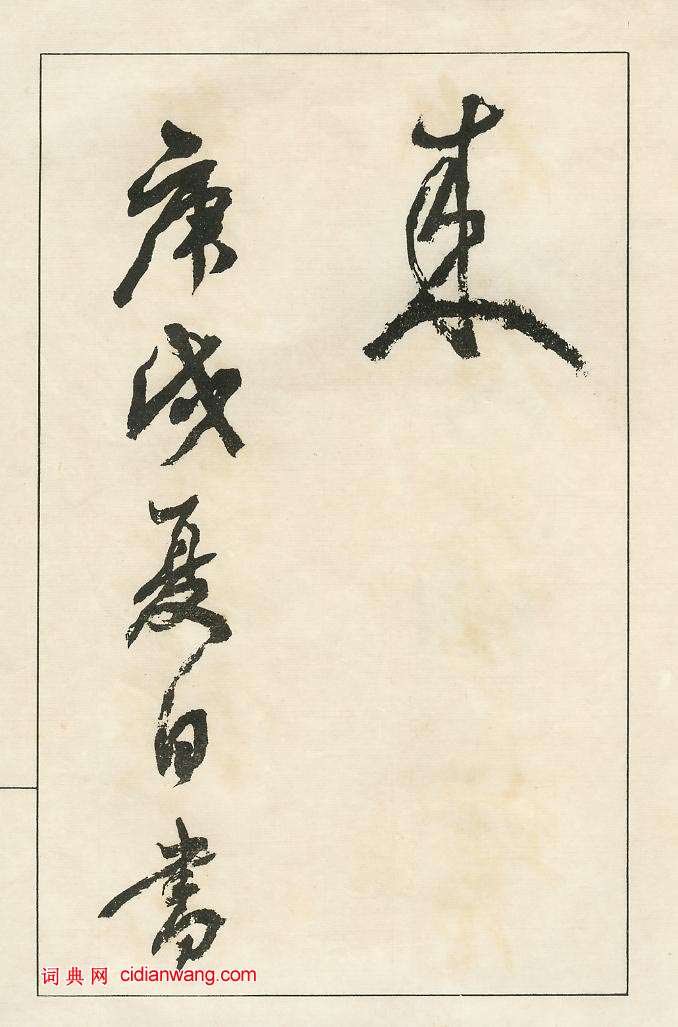 庚戌夏日書
词典网 cidianwang.com